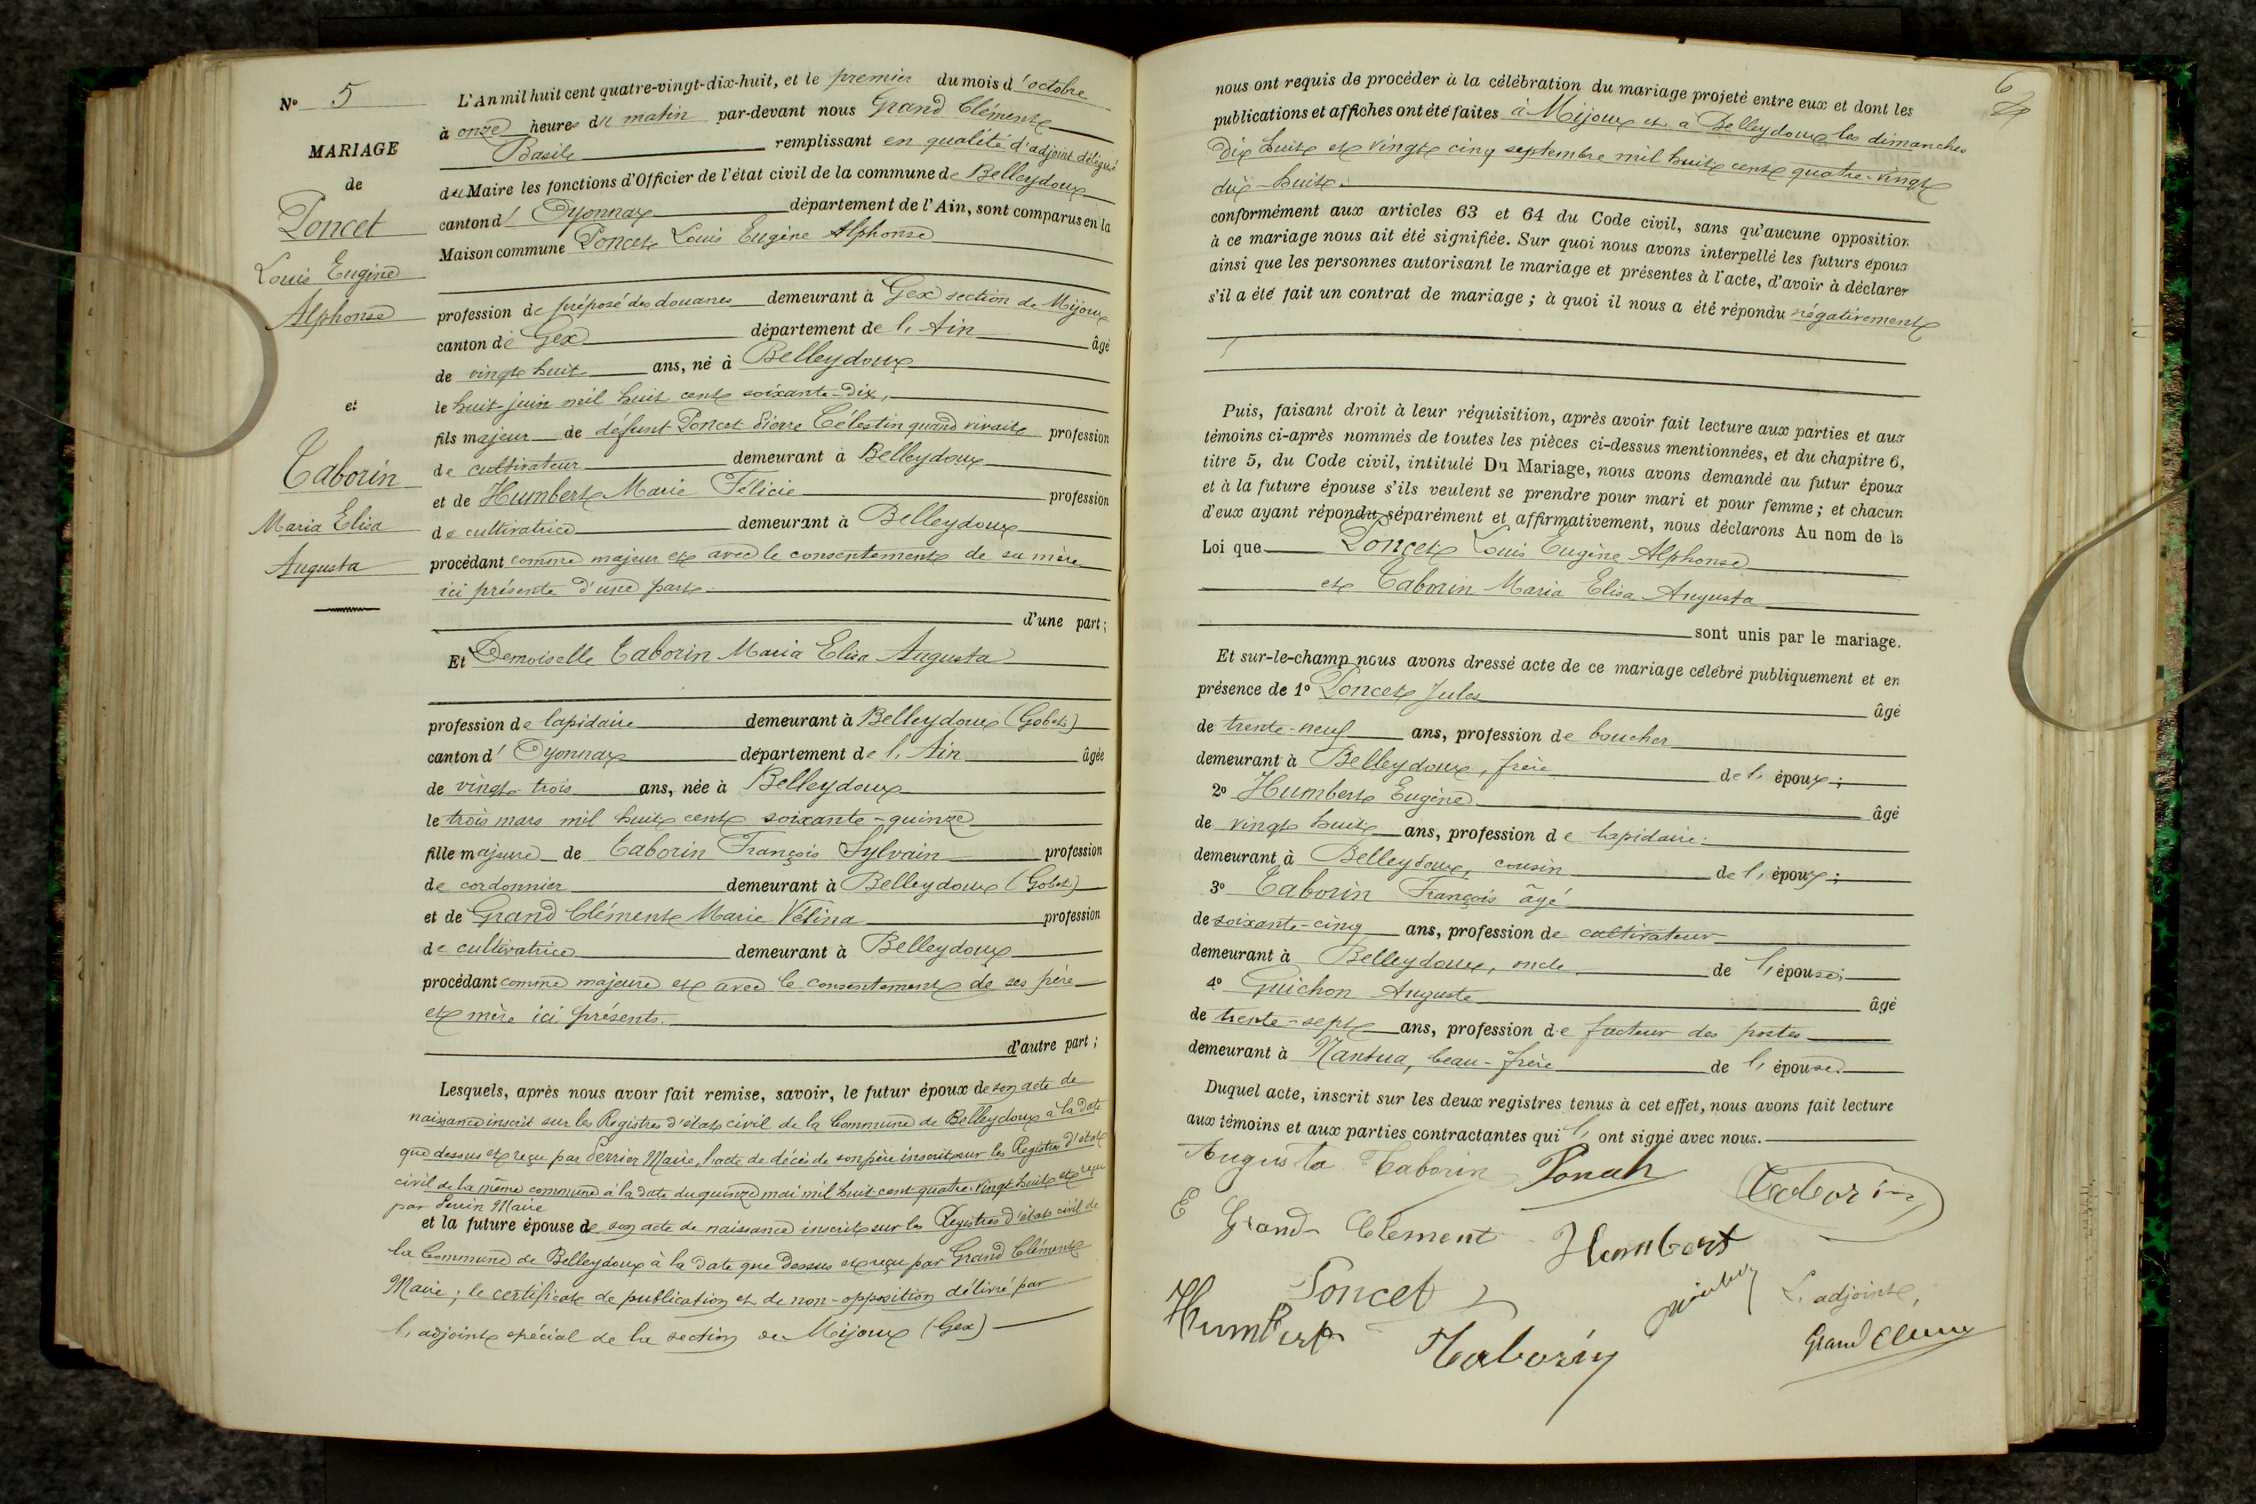 N° 5
MARIAGE
de
Poncet
Louis Eugène
Alphonse
et
Taborin
Maria Elisa
Augusta
L'An mil huit cent quatre-vingt-dix-huit, et le premier du mois d'octobre
à onze heures du matin par-devant nous Grand Clément
Basile remplissant en qualité d'adjoint délégué
du Maire les fonctions d'Officier de l'état civil de la commune de Belleydoux
canton d' Oyonnax département de l'Ain, sont comparus en la
Maison commune Poncet Louis Eugène Alphonse
profession de préposé des douanes demeurant à Gex section de Mijoux
canton de Gex département de l'Ain âgé
de vingt huit ans, né à Belleydoux
le huit juin mil huit cent soixante-dix,
fils majeur de défunt Poncet Pierre Célestin quand vivait profession
de cultivateur demeurant à Belleydoux
et de Humbert Marie Félicie profession
de cultivatrice demeurant à Belleydoux
procédant comme majeur et avec le consentement de sa mère
ici présente d'une part
d'une part;
Et Demoiselle Taborin Maria Elisa Augusta
profession de lapidaire demeurant à Belleydoux (Gobet)
canton d' Oyonnax département de l'Ain âgée
de vingt-trois ans, née à Belleydoux
le trois mars mil huit cent soixante-quinze
fille majeure de Taborin François Sylvain profession
de cordonnier demeurant à Belleydoux (Gobet)
et de Grand Clément Marie Vélina profession
de cultivatrice demeurant à Belleydoux
procédant comme majeure et avec le consentement de ses père
et mère ici présents.
d'autre part;
Lesquels, après nous avoir fait remise, savoir, le futur époux de son acte de
naissance inscrit sur les Registres d'état civil de la Commune de Belleydoux à la date
que dessus et reçu par Perrier Maire, l'acte de décès de son père inscrit sur les Registres d'état
civil de la même commune à la date du quinze mai mil huit cent quatre-vingt huit et reçu
par Maire
et la future épouse de son acte de naissance inscrit sur les Registres d'état civil de
la Commune de Belleydoux à la date que dessus et reçu par Grand Clément
Maire; le certificat de publication et de non-opposition délivré par
l'adjoint spécial de la section de Mijoux (Gex)
6
nous ont requis de procéder à la célébration du mariage projeté entre eux et dont les
publications et affiches ont été faites à Mijoux et à Belleydoux les dimanches
dix huit et vingt cinq septembre mil huit cent quatre-vingt
dix-huit.
conformément aux articles 63 et 64 du Code civil, sans qu'aucune opposition
à ce mariage nous ait été signifiée. Sur quoi nous avons interpellé les futurs époux
ainsi que les personnes autorisant le mariage et présentes à l'acte, d'avoir à déclarer
s'il a été fait un contrat de mariage; à quoi il nous a été répondu négativement
Puis, faisant droit à leur réquisition, après avoir fait lecture aux parties et aux
témoins ci-après nommés de toutes les pièces ci-dessus mentionnées, et du chapitre 6,
titre 5, du Code civil, intitulé Du Mariage, nous avons demandé au futur époux
et à la future épouse s'ils veulent se prendre pour mari et pour femme; et chacun
d'eux ayant répondu séparément et affirmativement, nous déclarons Au nom de la
Loi que Poncet Louis Eugène Alphonse
et Taborin Maria Elisa Augusta
sont unis par le mariage.
Et sur-le-champ nous avons dressé acte de ce mariage célébré publiquement et en
présence de 1° Poncet Jules âgé
de trente-neuf ans, profession de boucher
demeurant à Belleydoux, frère de l'époux;
2° Humbert Eugène âgé
de vingt huit ans, profession de lapidaire
demeurant à Belleydoux, cousin de l'époux;
3° Taborin François âgé
de soixante-cinq ans, profession de cultivateur
demeurant à Belleydoux, oncle de l'épouse;
4° Guichon Auguste âgé
de trente-sept ans, profession de facteur des postes
demeurant à Nantua, beau-frère de l'épouse.
Duquel acte, inscrit sur les deux registres tenus à cet effet, nous avons fait lecture
aux témoins et aux parties contractantes qui l'ont signé avec nous.
Augusta Taborin Taborin
E Grand Clement Humbert
Poncet L'adjoint,
Humbert Taborin Grand Clément